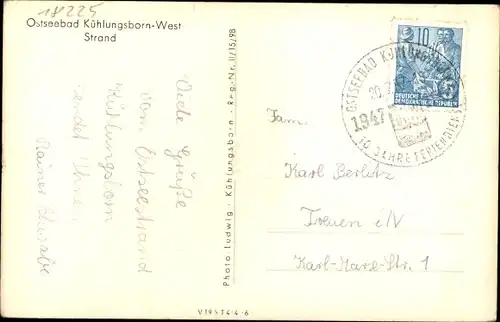 18225
Ostseebad Kühlungsborn-West
Strand
Viele Grüße
vom Ostseestrand
Kühlungsborn
sendet Ihnen
Rainer
Photo Ludwig · Kühlungsborn · Reg.-Nr. II/15/98
V 19 5 T 4 4 6
10
DEUTSCHE
DEMOKRATISCHE REPUBLIK
OSTSEEBAD KÜHLUNGSBORN
20.7.57
1947
10 JAHRE FERIENDIENST
Fam.
Karl Berlitz
Treuen i/V
Karl-Marx-Str. 1